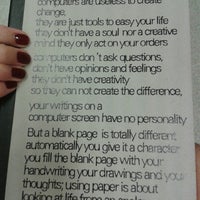 computers are useless to create
change,
they are just tools to easy your life
they don't have a soul nor a creative
mind they only act on your orders
computers don't ask questions,
don't have opinions and feelings
they don't have creativity
so they can not create the difference,
your writings on a
computer screen have no personality
But a blank page is totally different
automatically you give it a character
you fill the blank page with your
handwriting your drawings and your
thoughts; using paper is about
looking at life from an